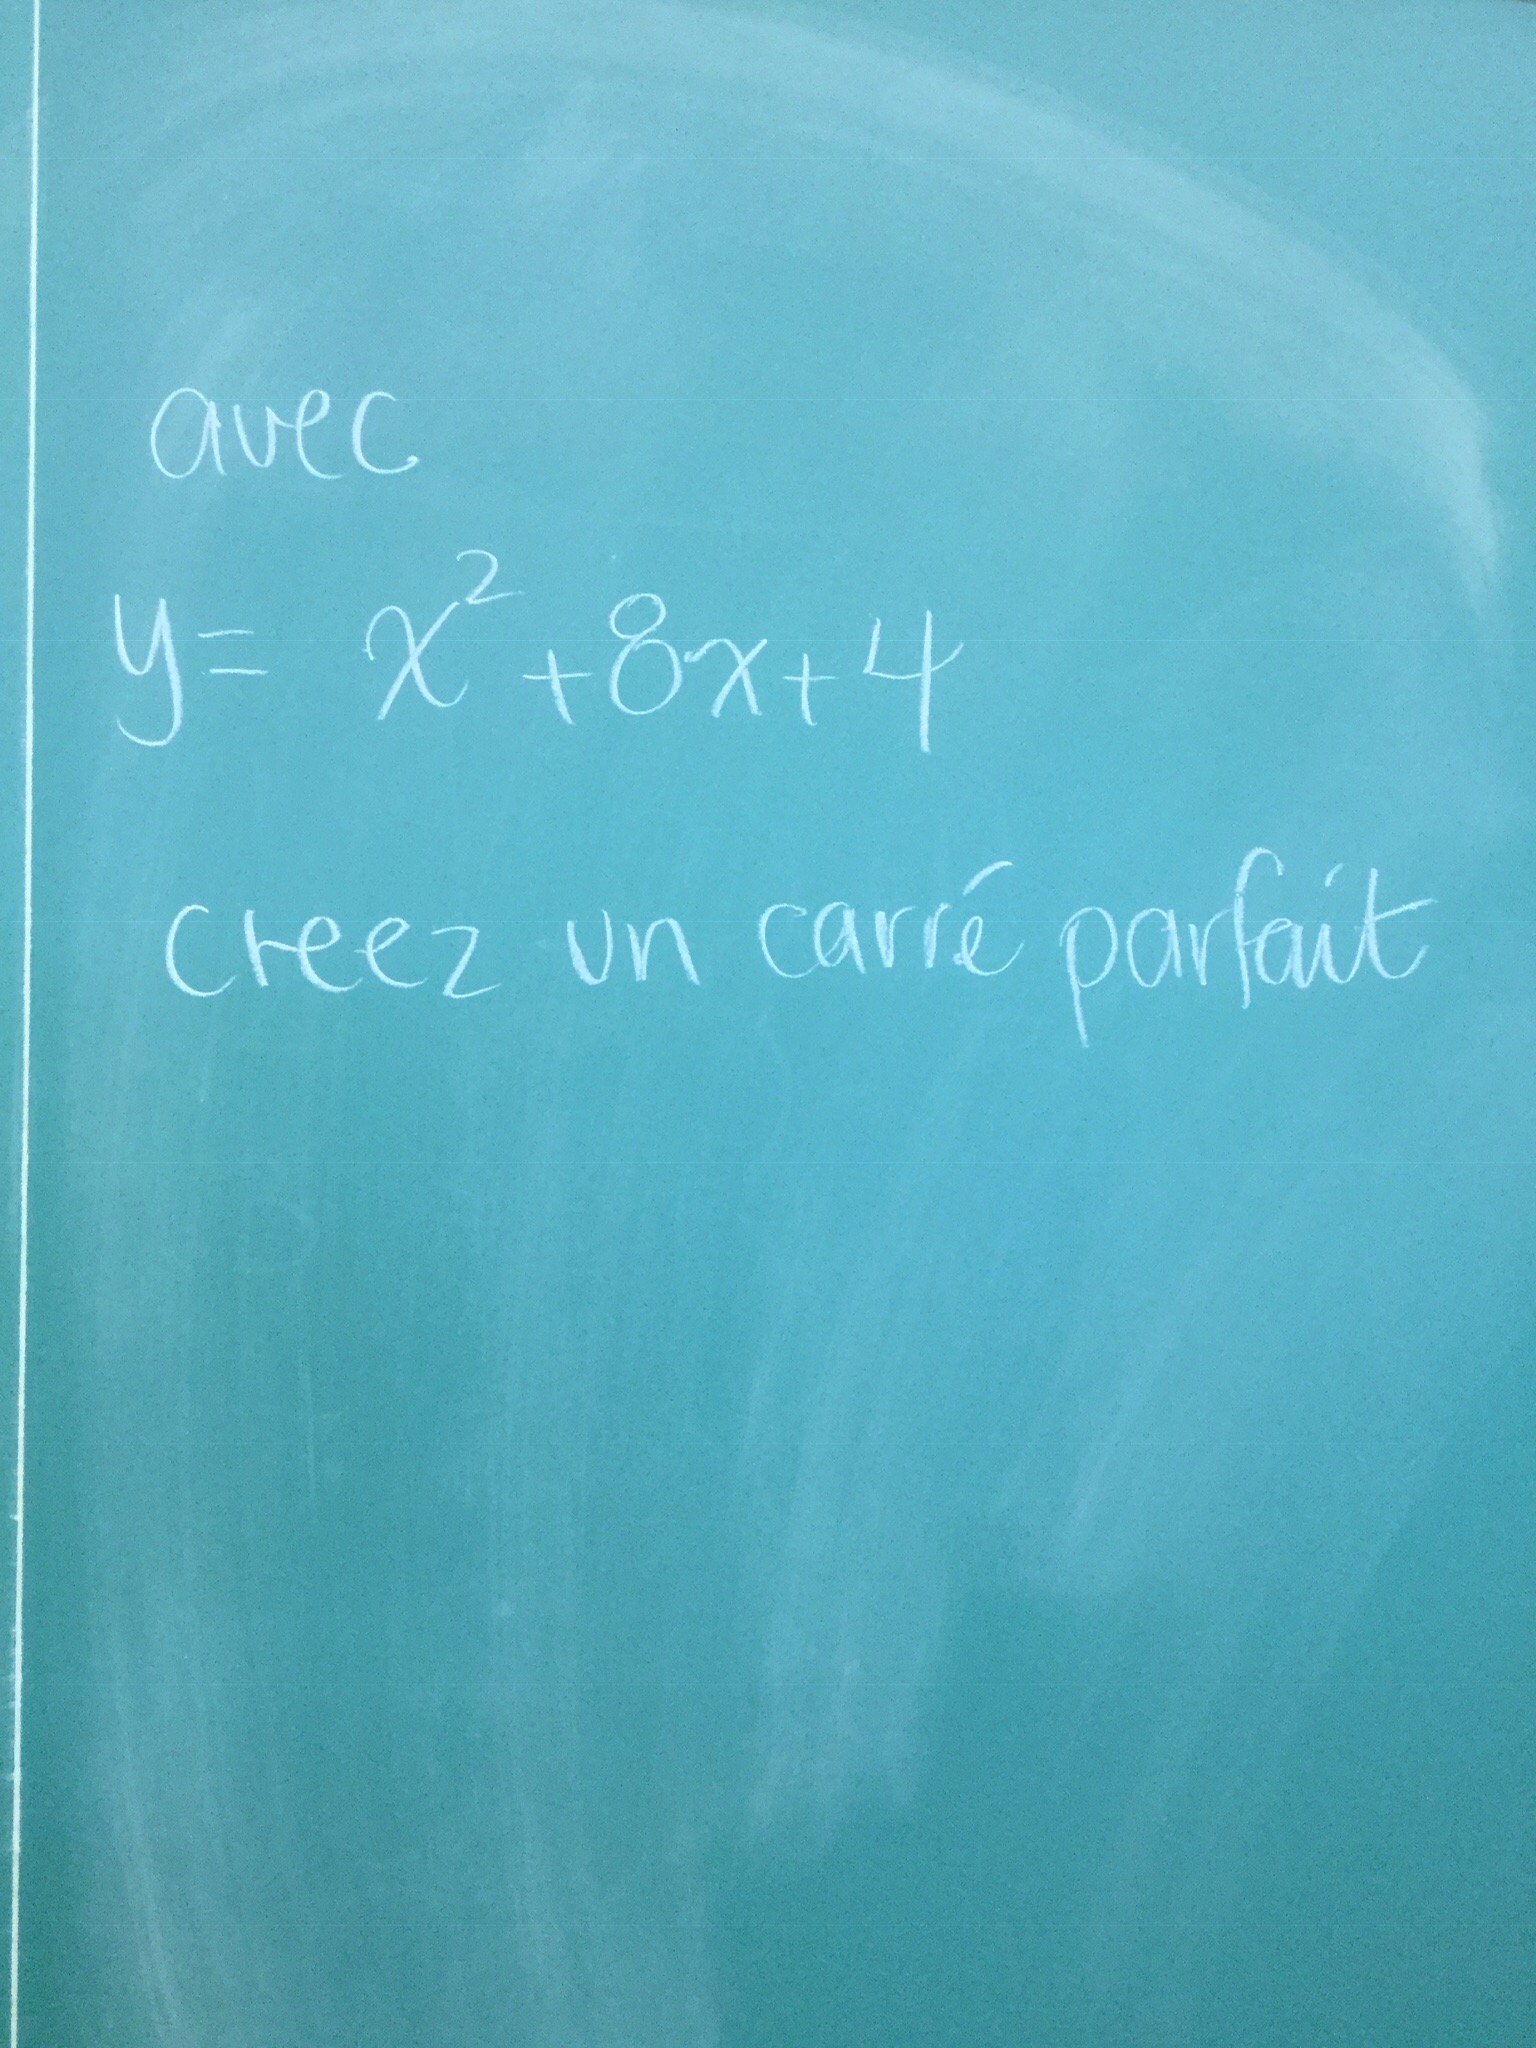 avec
y= x² +8x+4
creez un carré parfait